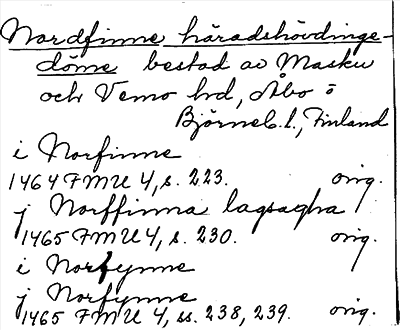 Nordfinne häradshövdinge-
döme bestod av Masku
och Vemo hd, Åbo o
Björneb. l., Finland
i Norfinne
1464 FMU 4, s. 223. orig.
j Norffinna lagsagha
1465 FMU 4, s. 230. orig.
i Norfynne
j Norfynne
1465 FMU 4, ss. 238, 239. orig.